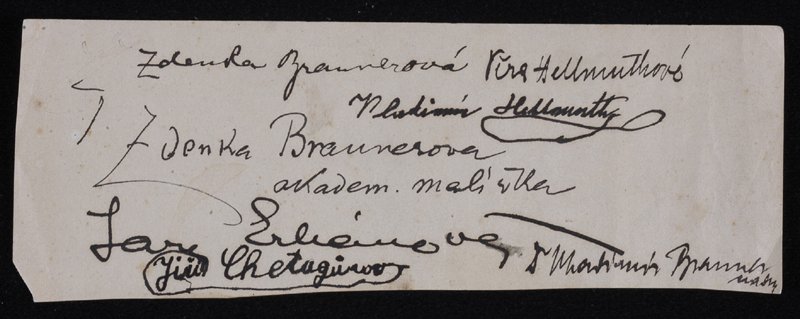 Zdenka Braunerová Věra Hellmuthová
Vladimír Hellmuth
Zdenka Braunerova
akadem. malířka
Jar. Erbánova
Jiří Chetagurov
Dr Vladimír Brauner